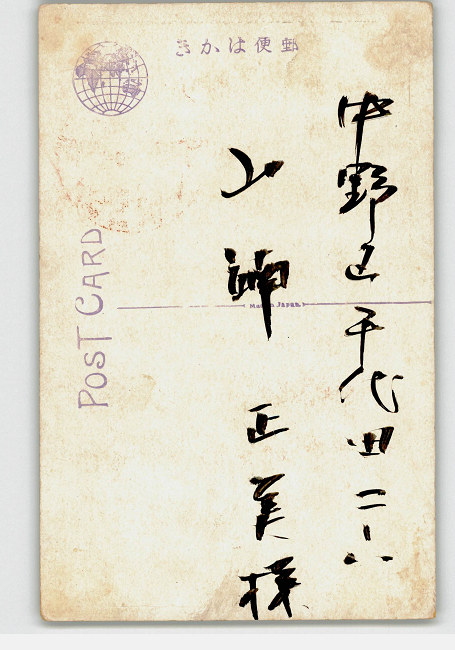 郵便はかき
中野区千代田二一六
山師正美様
POST CARD
MADE IN JAPAN